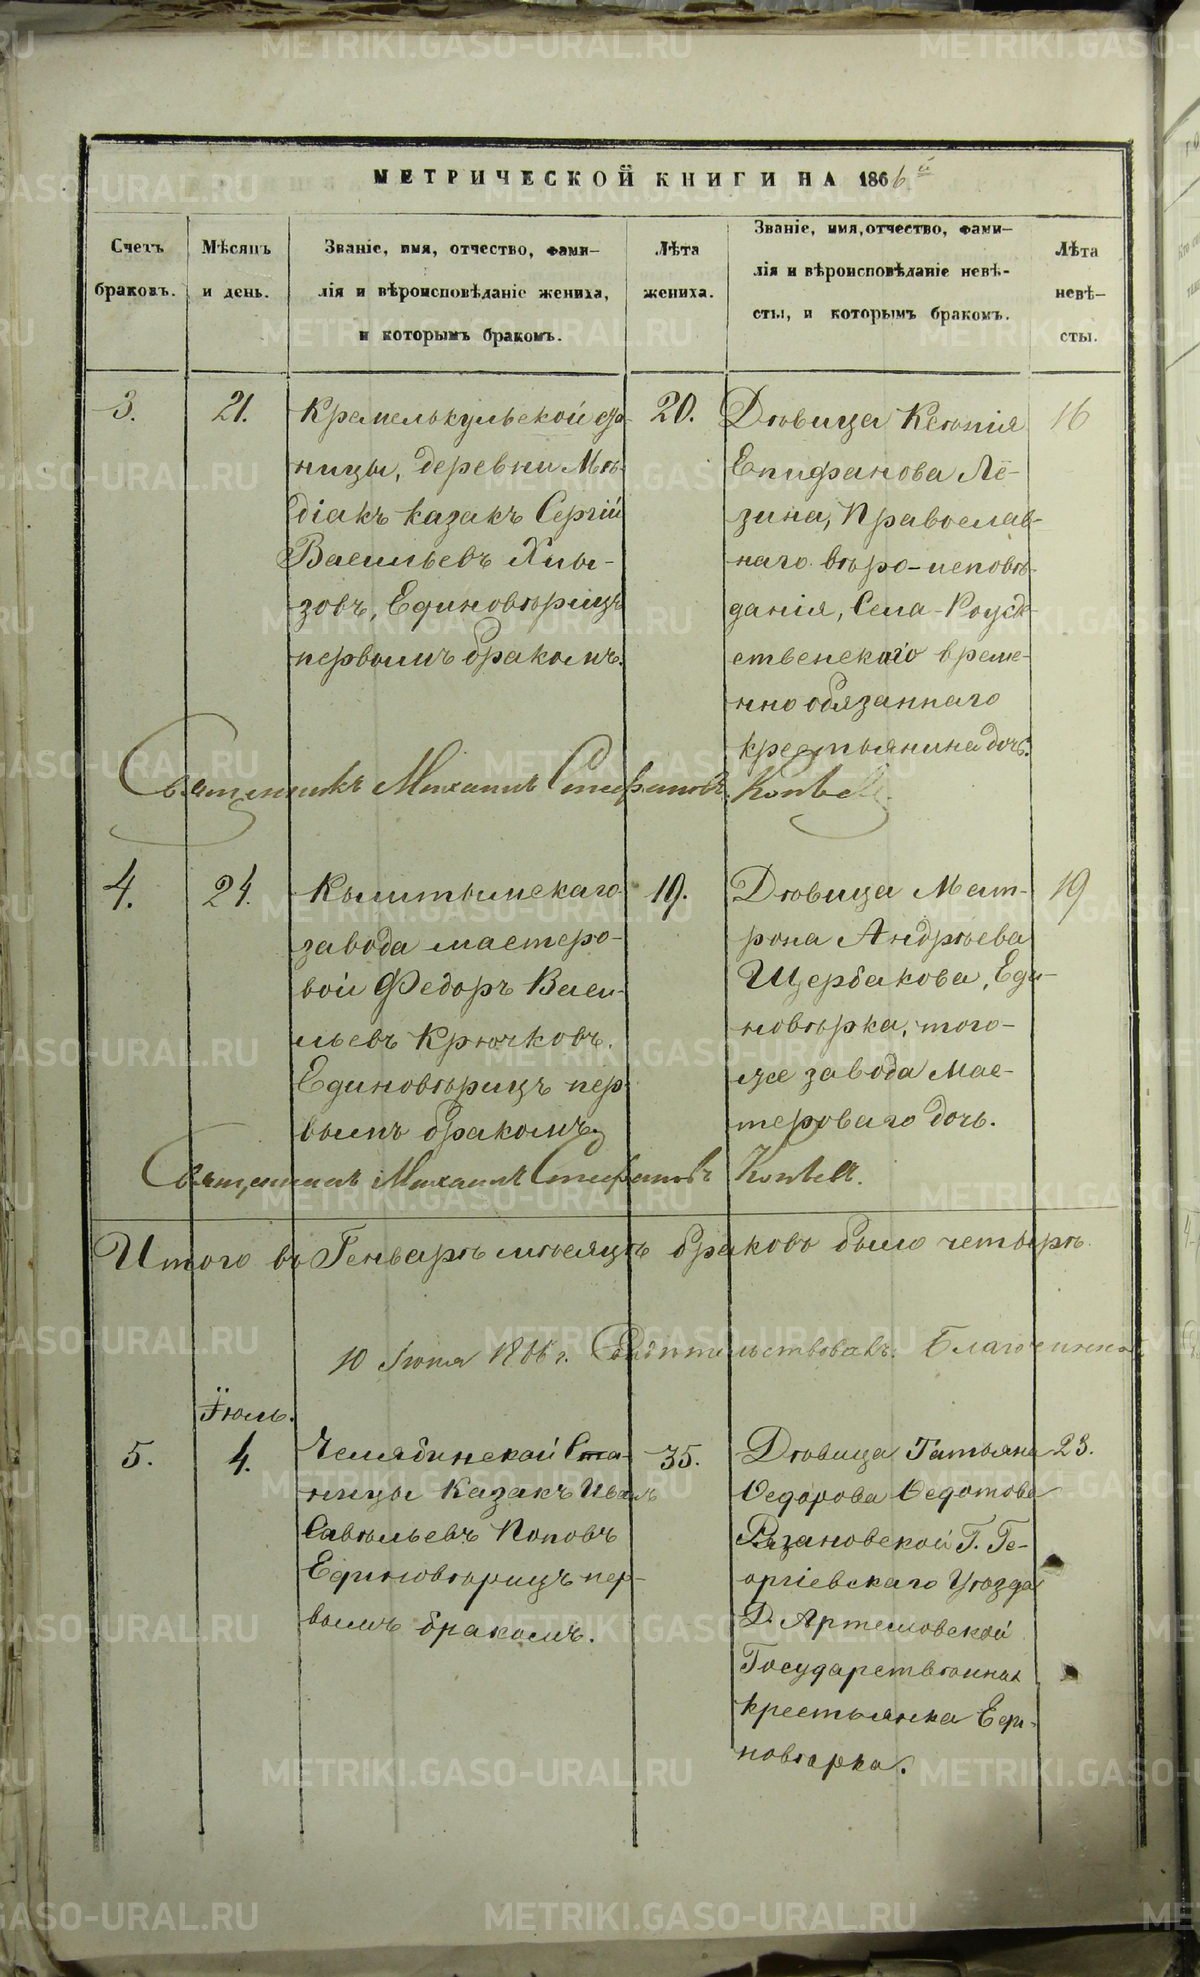 МЕТРИЧЕСКОЙ КНИГИ НА 1866й
Счетъ
браковъ.
Мѣсяцъ
и день.
Званіе, имя, отчество, фами-
лія и вѣроисповѣданіе жениха,
и которымъ бракомъ.
Лѣта
жениха.
Званіе, имя, отчество, фами-
лія и вѣроисповѣданіе невѣ-
сты, и которымъ бракомъ.
Лѣта
невѣ-
сты.
3.
21.
Кремелькульской
ницы, деревни Мѣ-
діакъ казакъ Сергій
Васильевъ Хлы-
зовъ, Единовѣрицъ
первымъ бракомъ.
20.
Дѣвица Ксенія
Епифанова Лё-
зина, Православ-
наго вѣро-исповѣ-
данія, Села-Рожд-
ственскаго време-
нно обязаннаго
крестьянина дочь.
16
Священникъ Михаилъ Стефановъ
4.
24.
Кыштымскаго
завода мастеро-
вой Федоръ Васи-
льевъ Крючковъ.
Единовѣрицъ пер-
вымъ бракомъ.
19.
Дѣвица Мат-
рона Андрѣева
Щербакова, Еди-
новѣрка, того-
же завода мас-
тероваго дочь.
19
Священникъ Михаилъ Стефановъ
Итого въ Генварѣ мѣсяцѣ браковъ было четырѣ.
10 1866 г. Свидѣтельствовалъ. Благочинный
Іюль.
5.
4.
Челябинской Ста-
ницы Казакъ Иванъ
Савѣльевъ Поповъ
Единовѣрицъ пер-
вымъ бракомъ.
35.
Дѣвица Татьяна
Ѳедорова Ѳедотова
Рязановской Г. Ге-
оргіевскаго Уѣзда
Д. Артемовской
Государствѣнная
крестьянка Еди-
новѣрка.
23.
METRIKI.GASO-URAL.RU